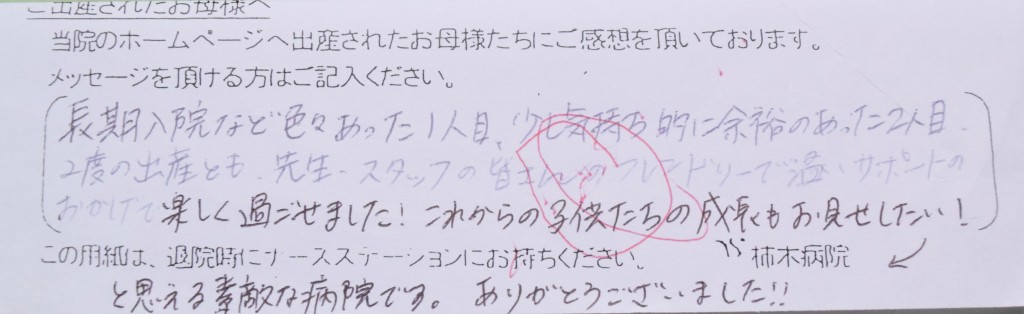 ご出産されたお母様へ
当院のホームページへ出産されたお母様たちにご感想を頂いております。
メッセージを頂ける方はご記入ください。
長期入院など色々あった1人目、少し気持ち的に余裕のあった2人目、
2度の出産とも、先生、スタッフの皆さんのフレンドリーで温いサポートの
おかげで楽しく過ごせました！これからの子供たちの成長もお見せしたい！
この用紙は、退院時にナースステーションにお持ちください。 柿木病院
と思える素敵な病院です。ありがとうございました!!